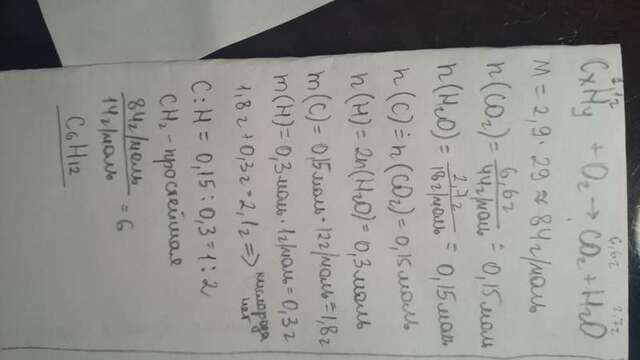 2,1г 6,6г 2,7г
CxHy + O2 → CO2 + H2O
M = 2,9 · 29 ≈ 84г/моль
n(CO2) = 6,6г / 44г/моль = 0,15моль
n(H2O) = 2,7г / 18г/моль = 0,15моль
n(C) = n(CO2) = 0,15моль
n(H) = 2n(H2O) = 0,3моль
m(C) = 0,15моль · 12г/моль = 1,8г
m(H) = 0,3моль · 1г/моль = 0,3г
1,8г + 0,3г = 2,1г => кислорода нет
C : H = 0,15 : 0,3 = 1 : 2
CH2 - простейшая
84г/моль / 14г/моль = 6
C6H12